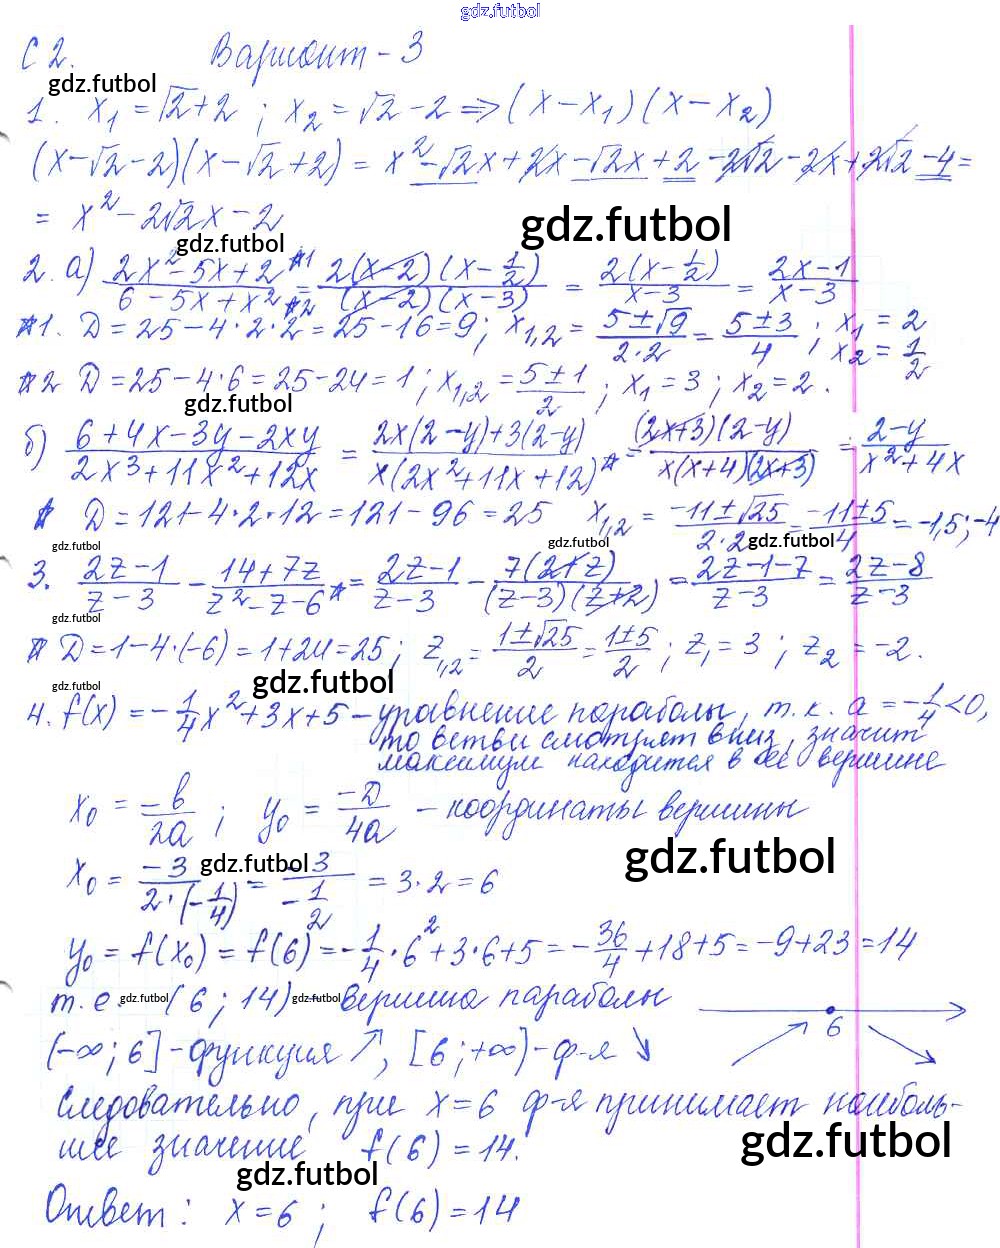 gdz.futbol
С 2. Вариант - 3
gdz.futbol
1. x₁ = √2 + 2 ; x₂ = √2 - 2 => (x - x₁)(x - x₂)
(x - √2 - 2)(x - √2 + 2) = x² - √2x + 2x - √2x + 2 - 2√2 - 2x + 2√2 - 4 =
= x² - 2√2x - 2
gdz.futbol
gdz.futbol
2. а) (2x² - 5x + 2 *1)/(6 - 5x + x² *2) = (2(x - 2)(x - 1/2))/((x - 2)(x - 3)) = (2(x - 1/2))/(x - 3) = (2x - 1)/(x - 3)
*1. D = 25 - 4·2·2 = 25 - 16 = 9; x₁,₂ = (5 ± √9)/(2·2) = (5 ± 3)/4 ; x₁ = 2 x₂ = 1/2
*2 D = 25 - 4·6 = 25 - 24 = 1 ; x₁,₂ = (5 ± 1)/2 ; x₁ = 3 ; x₂ = 2 .
gdz.futbol
б) (6 + 4x - 3y - 2xy)/(2x³ + 11x² + 12x) = (2x(2 - y) + 3(2 - y))/(x(2x² + 11x + 12)*) = ((2x + 3)(2 - y))/(x(x + 4)(2x + 3)) = (2 - y)/(x² + 4x)
* D = 121 - 4·2·12 = 121 - 96 = 25 x₁,₂ = (-11 ± √25)/(2·2) = (-11 ± 5)/4 = -1,5 ; -4
gdz.futbol gdz.futbol gdz.futbol
3. (2z - 1)/(z - 3) - (14 + 7z)/(z² - z - 6 *) = (2z - 1)/(z - 3) - (7(2 + z))/((z - 3)(z + 2)) = (2z - 1 - 7)/(z - 3) = (2z - 8)/(z - 3)
gdz.futbol
* D = 1 - 4·(-6) = 1 + 24 = 25 ; z₁,₂ = (1 ± √25)/2 = (1 ± 5)/2 ; z₁ = 3 ; z₂ = -2 .
gdz.futbol gdz.futbol
4. f(x) = -1/4 x² + 3x + 5 - уравнение параболы, т.к. a = -1/4 < 0,
то ветви смотрят вниз, значит
максимум находится в её вершине
x₀ = -b/2a ; y₀ = -D/4a - координаты вершины
gdz.futbol
x₀ = -3/(2·(-1/4)) = -3/(-1/2) = 3·2 = 6
gdz.futbol
y₀ = f(x₀) = f(6) = -1/4 · 6² + 3·6 + 5 = -36/4 + 18 + 5 = -9 + 23 = 14
т.е. gdz.futbol (6 ; 14) gdz.futbol - вершина параболы
6
(-∞ ; 6] - функция ↗, [6 ; +∞) - ф-я ↘
следовательно, при x = 6 ф-я принимает наиболь-
шее значение f(6) = 14.
gdz.futbol
gdz.futbol
Ответ: x = 6 ; f(6) = 14